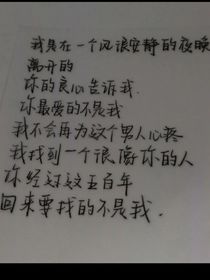 我是在一个风很安静的夜晚
离开的
你的良心告诉我
你最爱的不是我
我不会再为这个男人心疼
我找到一个很像你的人
你经过这五百年
回来要找的不是我.